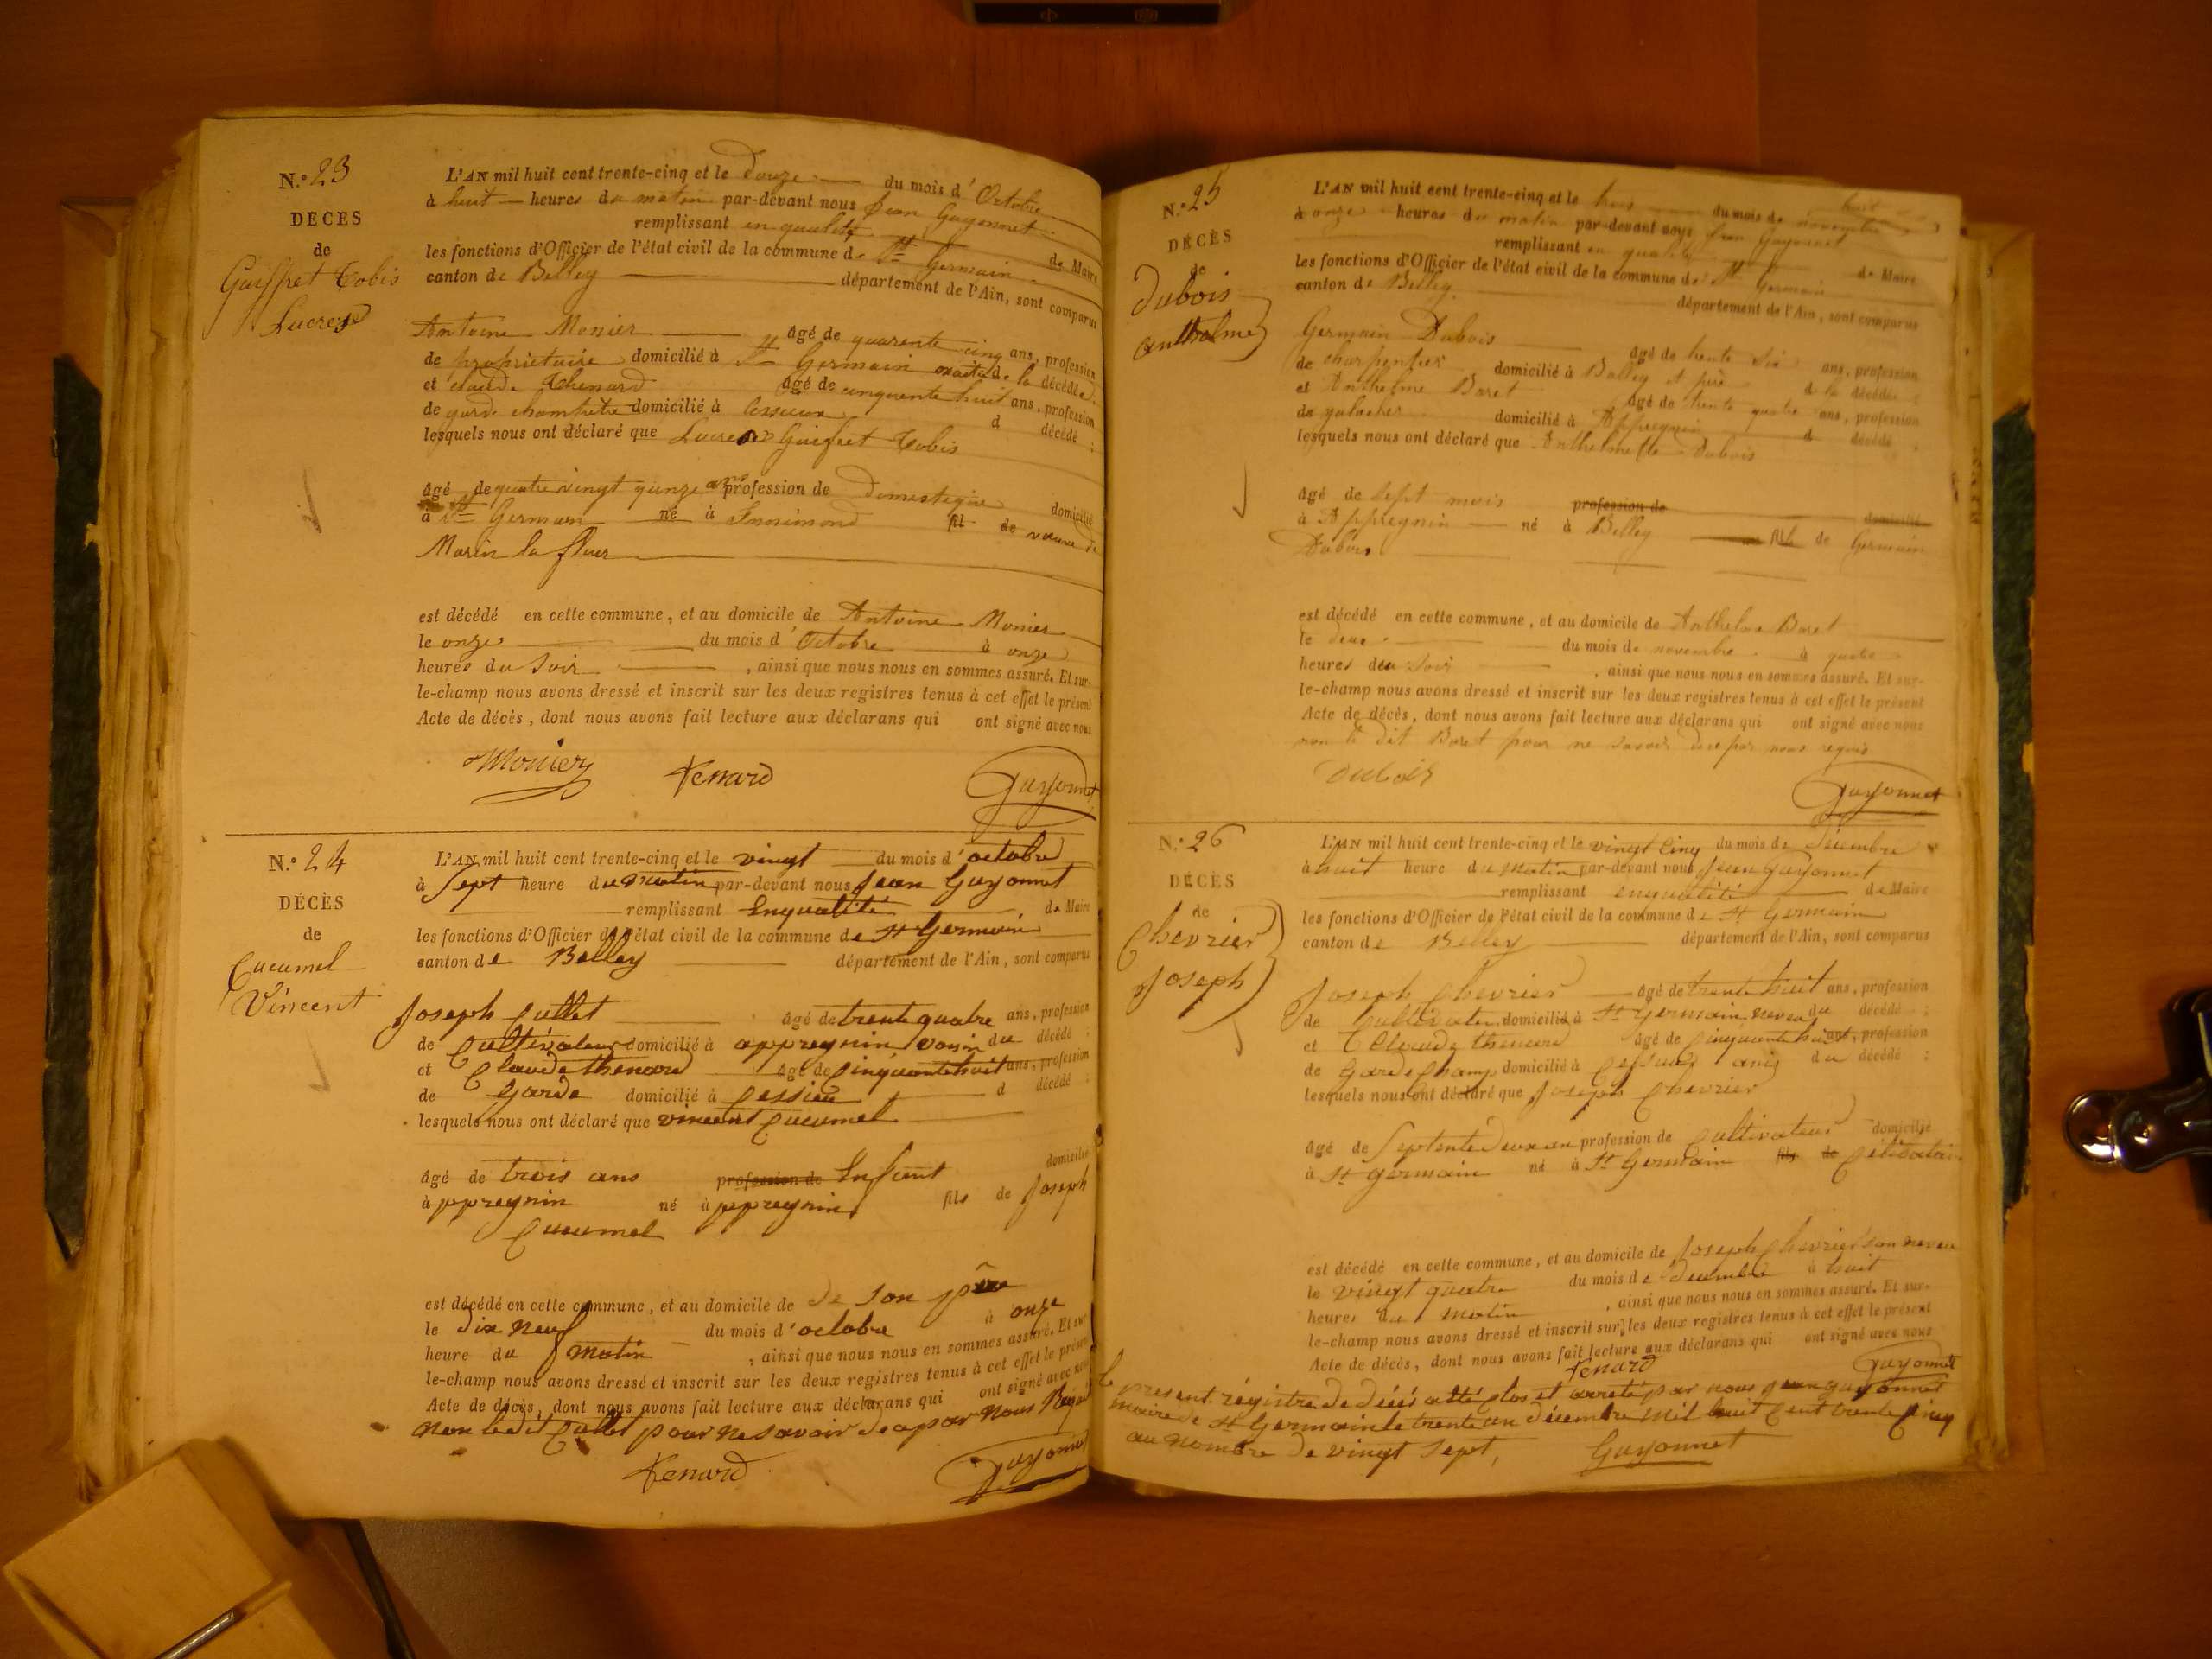 N.° 23
DECES
de
Guiffret Tobis
Lucrese
L'AN mil huit cent trente-cinq et le Douze du mois d'Octobre
à huit heures du matin par-devant nous Jean Guyonnet
remplissant en qualité de Maire
les fonctions d'Officier de l'état civil de la commune de St Germain
canton de Belley département de l'Ain, sont comparus
Antoine Monier âgé de quarente cinq ans, profession
de proprietaire domicilié à St Germain de la décédée
et claude thenard âgé de cinquente huit ans, profession
de garde champêtre domicilié à Cessieux d décédé :
lesquels nous ont déclaré que Lucrese Guiffret Tobis
âgé de quatre vingt quinze ans profession de Domestique domicilié
à St Germain né à Innimond fil de veuve de
Marin la fleur
est décédé en cette commune, et au domicile de Antoine Monier
le onze du mois d'Octobre à onze
heures du Soir, ainsi que nous nous en sommes assuré. Et sur-
le-champ nous avons dressé et inscrit sur les deux registres tenus à cet effet le présent
Acte de décès, dont nous avons fait lecture aux déclarans qui ont signé avec nous
Monier fenard Guyonnet
N.° 24
DÉCÈS
de
Cucumel
Vincent
L'AN mil huit cent trente-cinq et le vingt du mois d'octobre
à Sept heure du matin par-devant nous Jean Guyonnet
remplissant Enqualité de Maire
les fonctions d'Officier de l'état civil de la commune de St Germain
canton de Belley département de l'Ain, sont comparus
Joseph Cullet âgé de trente quatre ans, profession
de Cultivateur domicilié à appregnin voisin du décédé :
et Claude thenard âgé de Cinquante huit ans, profession
de Garde domicilié à Cessieu d décédé :
lesquels nous ont déclaré que vincent Cucumel
âgé de trois ans profession de Enfant domicilié
à appregnin né à appregnin fils de Joseph
Cucumel
est décédé en cette commune, et au domicile de de son père
le dix neuf du mois d'octobre à onze
heure du matin, ainsi que nous nous en sommes assuré. Et sur
le-champ nous avons dressé et inscrit sur les deux registres tenus à cet effet le présent
Acte de décès, dont nous avons fait lecture aux déclarans qui ont signé avec nous
non ledit Cullet pour ne savoir de ce par nous Requis
fenard Guyonnet
N.° 25
DÉCÈS
de
Dubois
anthelme
L'AN mil huit cent trente-cinq et le trois du mois de novembre
à onze heures du matin par-devant nous Jean Guyonnet
remplissant en qualité de Maire
les fonctions d'Officier de l'état civil de la commune de St Germain
canton de Belley département de l'Ain, sont comparus
Germain Dubois âgé de trente Six ans, profession
de charpentier domicilié à Belley et père d la décédée :
et Anthelme Boret âgé de trente quatre ans, profession
de domicilié à Appregnin d décédé :
lesquels nous ont déclaré que Anthelmette Dubois
âgé de Sept mois profession de domicilié
à Appregnin né à Belley fils de Germain
Dubois
est décédé en cette commune, et au domicile de Anthelme Boret
le deux du mois de novembre à quatre
heures du Soir, ainsi que nous nous en sommes assuré. Et sur-
le-champ nous avons dressé et inscrit sur les deux registres tenus à cet effet le présent
Acte de décès, dont nous avons fait lecture aux déclarans qui ont signé avec nous
non le dit Boret pour ne savoir de ce par nous requis
Dubois
Guyonnet
N.° 26
DÉCÈS
de
Chevrier
Joseph
L'AN mil huit cent trente-cinq et le vingt Cinq du mois de Décembre
à huit heure du matin par-devant nous Jean Guyonnet
remplissant enqualité de Maire
les fonctions d'Officier de l'état civil de la commune de St Germain
canton de Belley département de l'Ain, sont comparus
Joseph Chevrier âgé de trente huit ans, profession
de Cultivateur domicilié à St Germain neveu du décédé :
et Claude thenard âgé de Cinquante huit ans, profession
de Garde Champ domicilié à Cessieu amis du décédé :
lesquels nous ont déclaré que Joseph Chevrier
âgé de Septente Deux an profession de Cultivateur domicilié
à St germain né à St Germain fils de Célibataire
est décédé en cette commune, et au domicile de Joseph Chevrier son neveu
le vingt quatre du mois de Décembre à huit
heures du matin, ainsi que nous nous en sommes assuré. Et sur-
le-champ nous avons dressé et inscrit sur les deux registres tenus à cet effet le présent
Acte de décès, dont nous avons fait lecture aux déclarans qui ont signé avec nous
fenard Guyonnet
le present régistre de décés atté clos et arreté par nous jean guyonnet
maire de St Germain le trente un décembre mil huit Cent trente Cinq
au nombre de vingt Sept,
Guyonnet